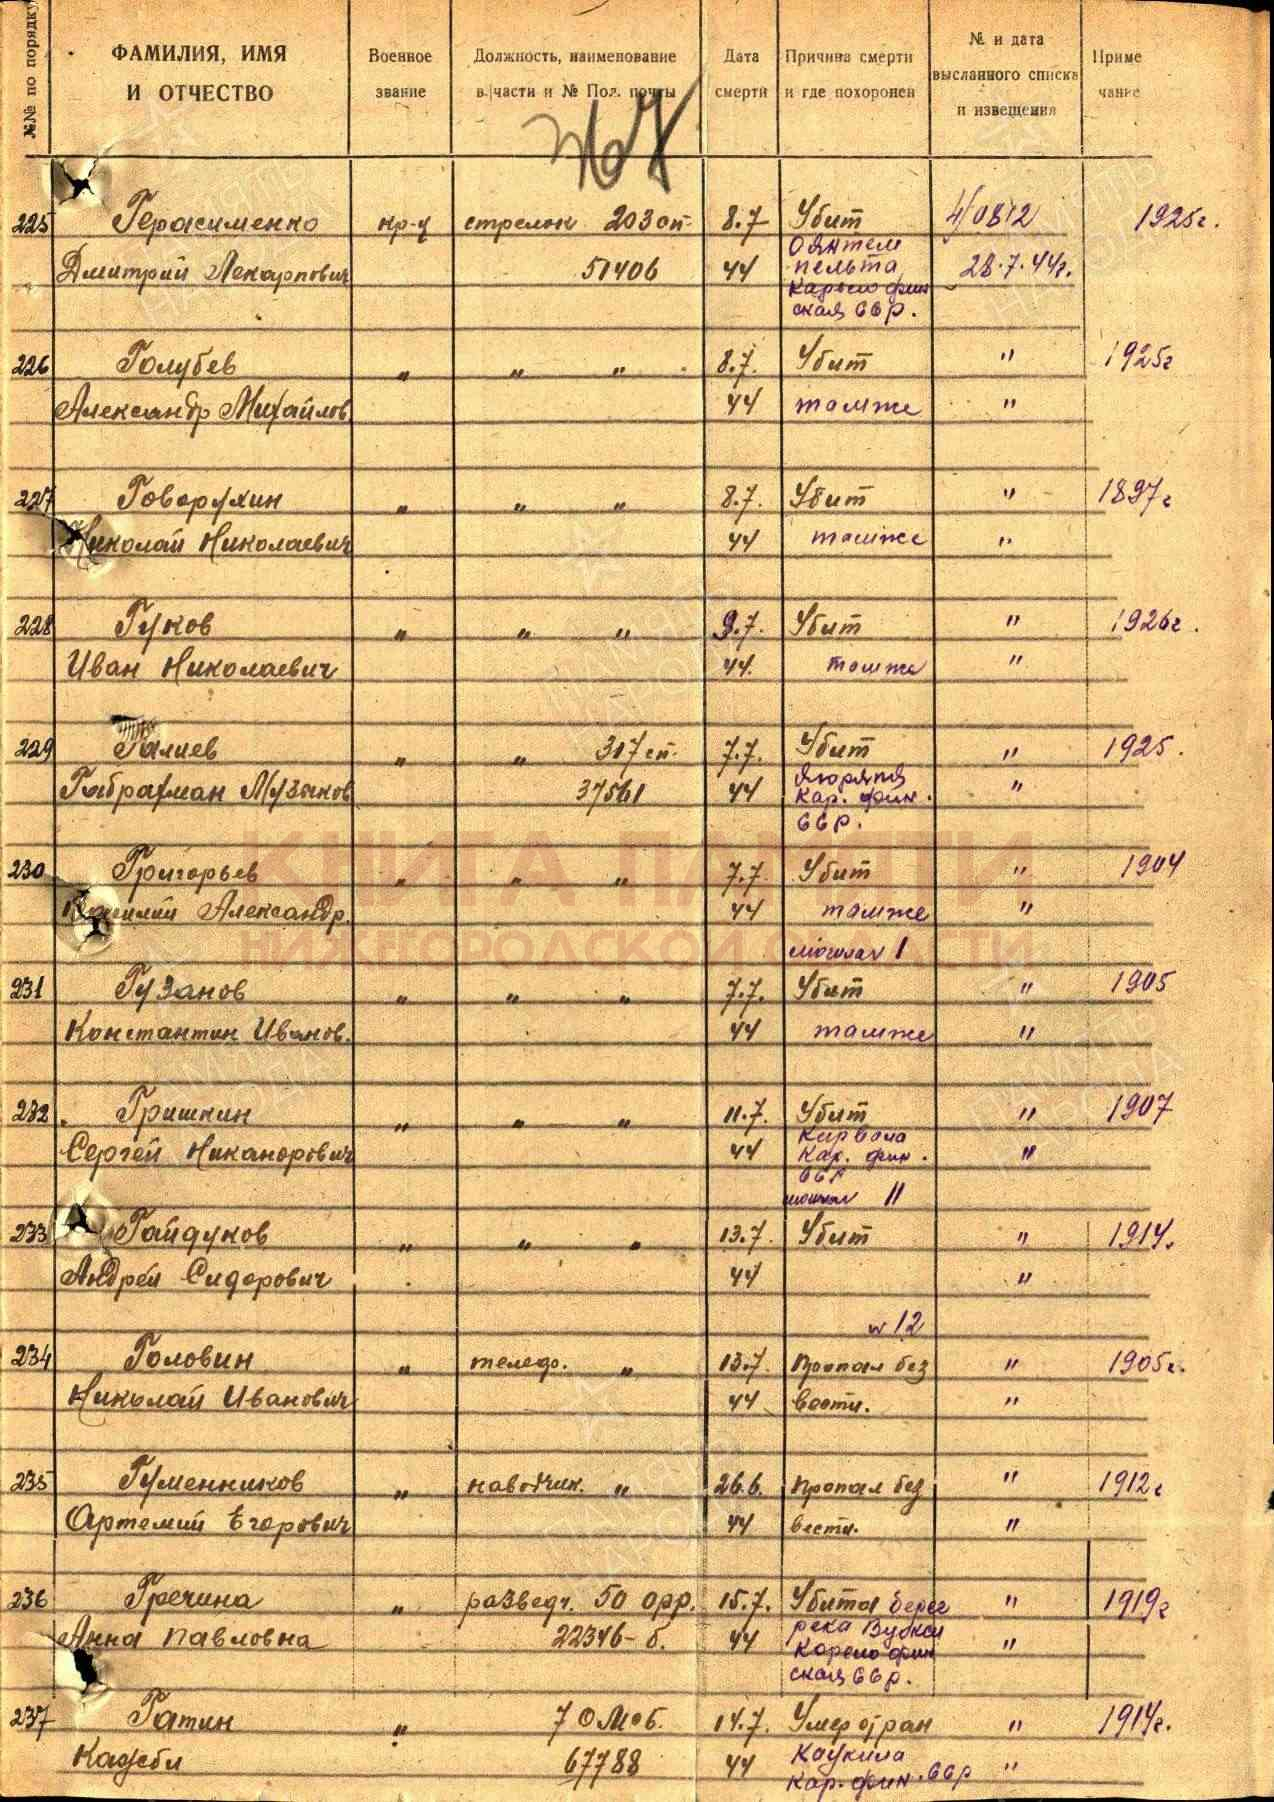 №№ по порядку
ФАМИЛИЯ, ИМЯ И ОТЧЕСТВО
Военное звание
Должность, наименование в/части и № Пол. почты
Дата смерти
Причина смерти и где похоронен
№ и дата высланного списка и извещения
Приме чание
225 Герасименко кр-ц стрелок 203 сп 8.7 Убит 4/0812 1925г.
Дмитрий 51406 44 28.7.44г.
Карело фин
ская ССР.
226 Голубев " " " 8.7. Убит " 1925г
Александр Михайлов. 44 там же "
227 Говорухин " " " 8.7. Убит " 1897г
Николай Николаевич 44 там же "
228 Гуков " " " 9.7. Убит " 1926г.
Иван Николаевич 44. там же "
229 Галиев " " 317 сп. 7.7. Убит " 1925.
37561 44 "
Кар. фин.
ССР.
230 Григорьев " " " 7.7. Убит " 1904
Василий Александр. 44 там же "
могила 1
231 Гузанов " " " 7.7. Убит " 1905
Константин Иванов. 44 там же "
232. Гришкин " " " 11.7. Убит " 1907
Сергей Никанорович 44 Кар. фин. "
ССР
могила 11
233 Гайдуков " " " 13.7. Убит " 1914.
Андрей Сидорович 44 "
12
234 Головин " телеф. " 13.7. Пропал без " 1905г.
Николай Иванович 44 вести. "
235 Гуменников " наводчик. " 26.6. Пропал без " 1912г
Артемий Егорович 44 вести. "
236 Гречина " разведч. 50 орр. 15.7. Убита берег " 1919г
Анна Павловна 22346-б. 44 река Вуокси "
Карело фин
ская ССР.
237 Гатин " 7 ОМсб. 14.7. Умер от ран " 1914г.
67788 44 "
Кар. фин. ССР
КНИГА ПАМЯТИ
НИЖЕГОРОДСКОЙ ОБЛАСТИ
ПАМЯТЬ НАРОДА